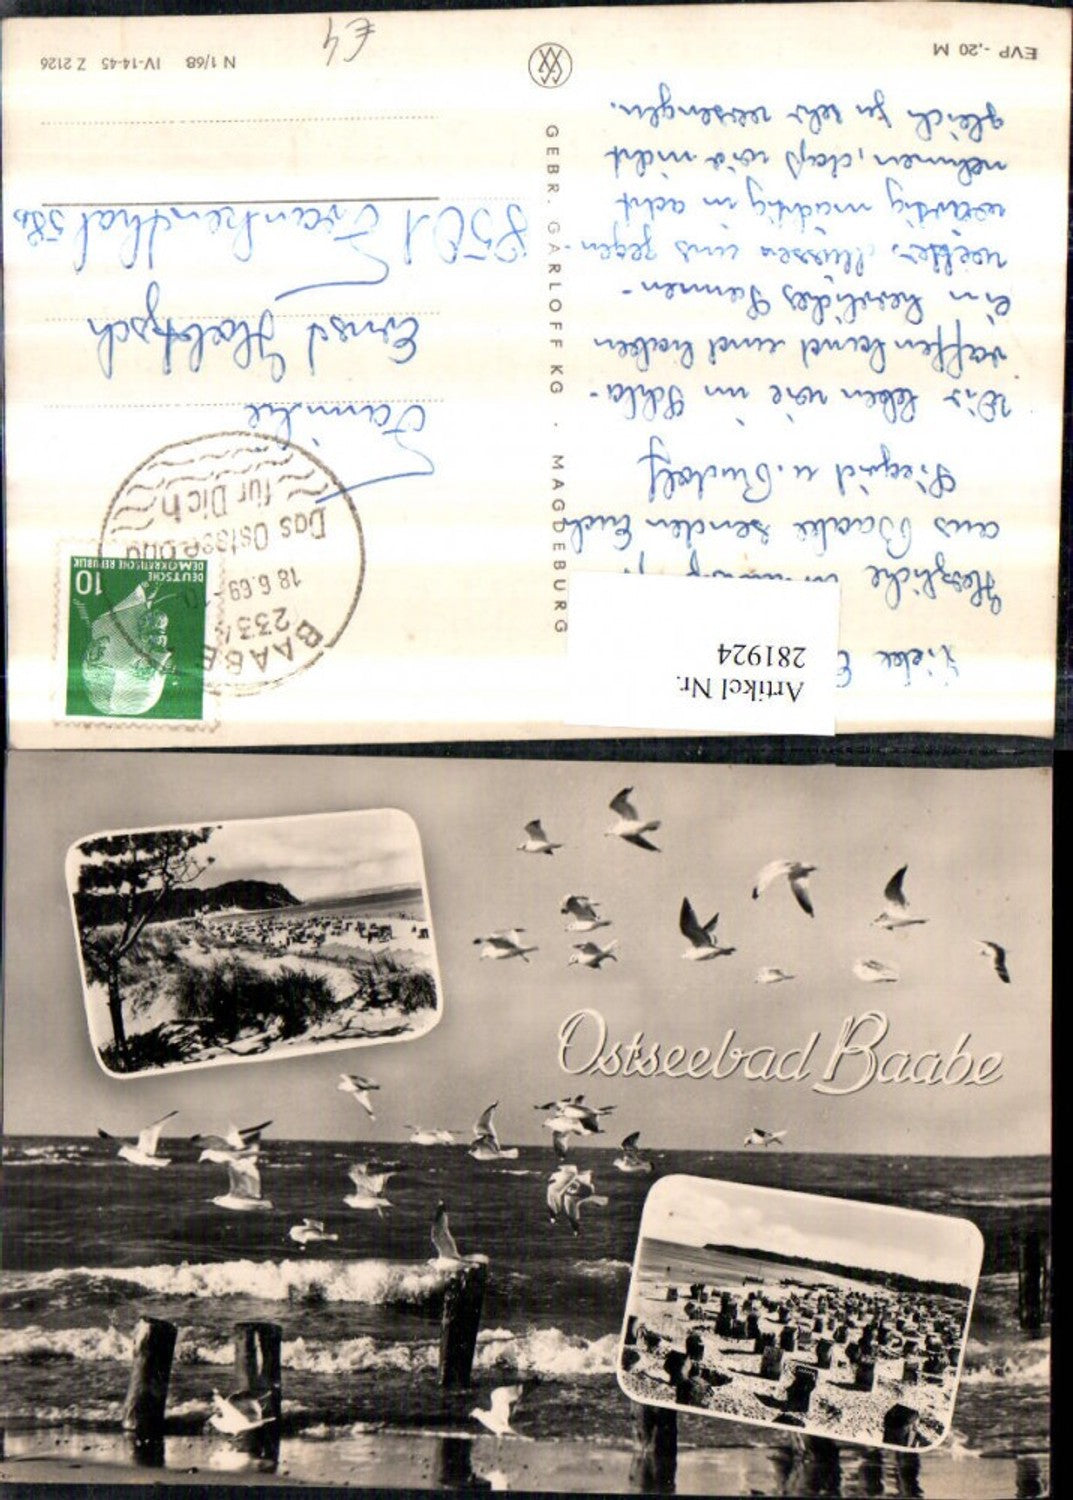 Artikel Nr.
281924
Liebe
Herzliche
aus Baabe senden Euch
Siegrid u. Rudolf
Wir leben wie im Schla-
raffenland und haben
ein herrliches Sonnen-
wetter. Müssen uns gegen-
wärtig mächtig in acht
nehmen, daß wir nicht
gleich zu sehr versengen.
EVP -,20 M
GEBR. GARLOFF KG . MAGDEBURG
BAABE
2334
18.6.69 - 10
Das Ostseebad
für Dich
10
DEUTSCHE
DEMOKRATISCHE REPUBLIK
Familie
Ernst
9301 Frankenthal 58b
N 1/68 IV-14-45 Z 2126
€4
Ostseebad Baabe